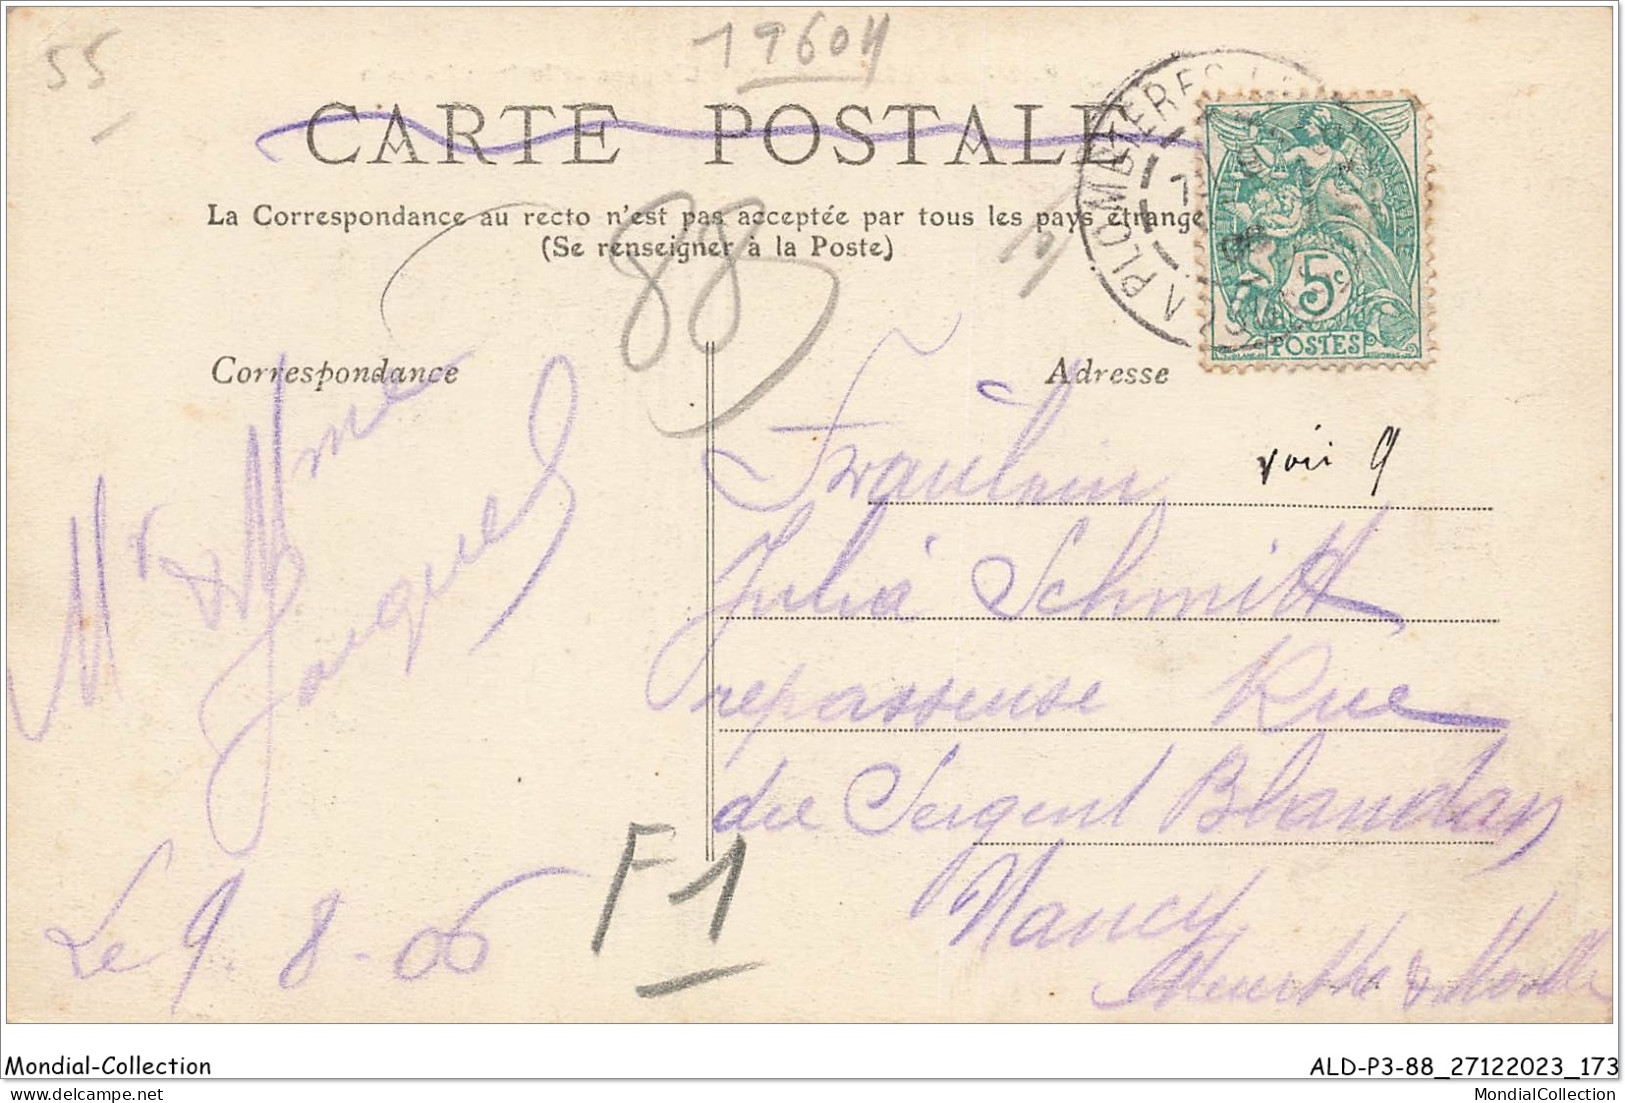 55
19604
CARTE POSTALE
La Correspondance au recto n'est pas acceptée par tous les pays étrange
(Se renseigner à la Poste)
88
PLOMBIERES
5c
POSTES
Correspondance
Adresse
voir 9
Mr & Mme
Jacques
Le 9-8-06
Fraülein
Julia Schmitt
repasseuse Rue
du Sergent Blandan
Nancy
Meurthe & Moselle
F1
Mondial-Collection
ALD-P3-88_27122023_173
MondialCollection